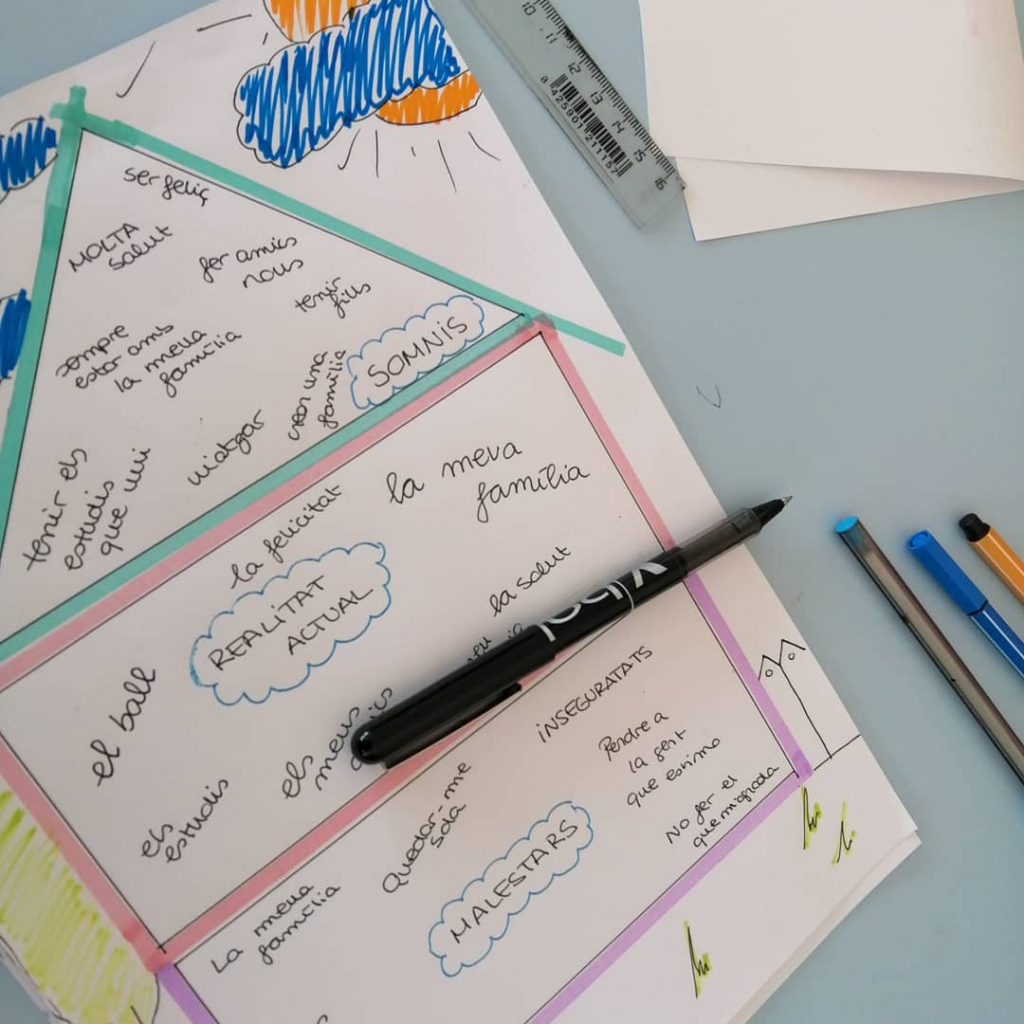 10 11 12 13 14 15 16
ser feliç
MOLTA
salut
fer amics
nous
tenir
fills
sempre
estar amb
la meva
família
crear una
família
SOMNIS
viatjar
tenir els
estudis
que vui
la meva
família
la felicitat
REALITAT
ACTUAL
la salut
el ball
els
meus
els
estudis
INSEGURATATS
Perdre a
la gent
que estimo
No fer el
que m'agrada
Quedar-me
sola
MALESTARS
La meva
família